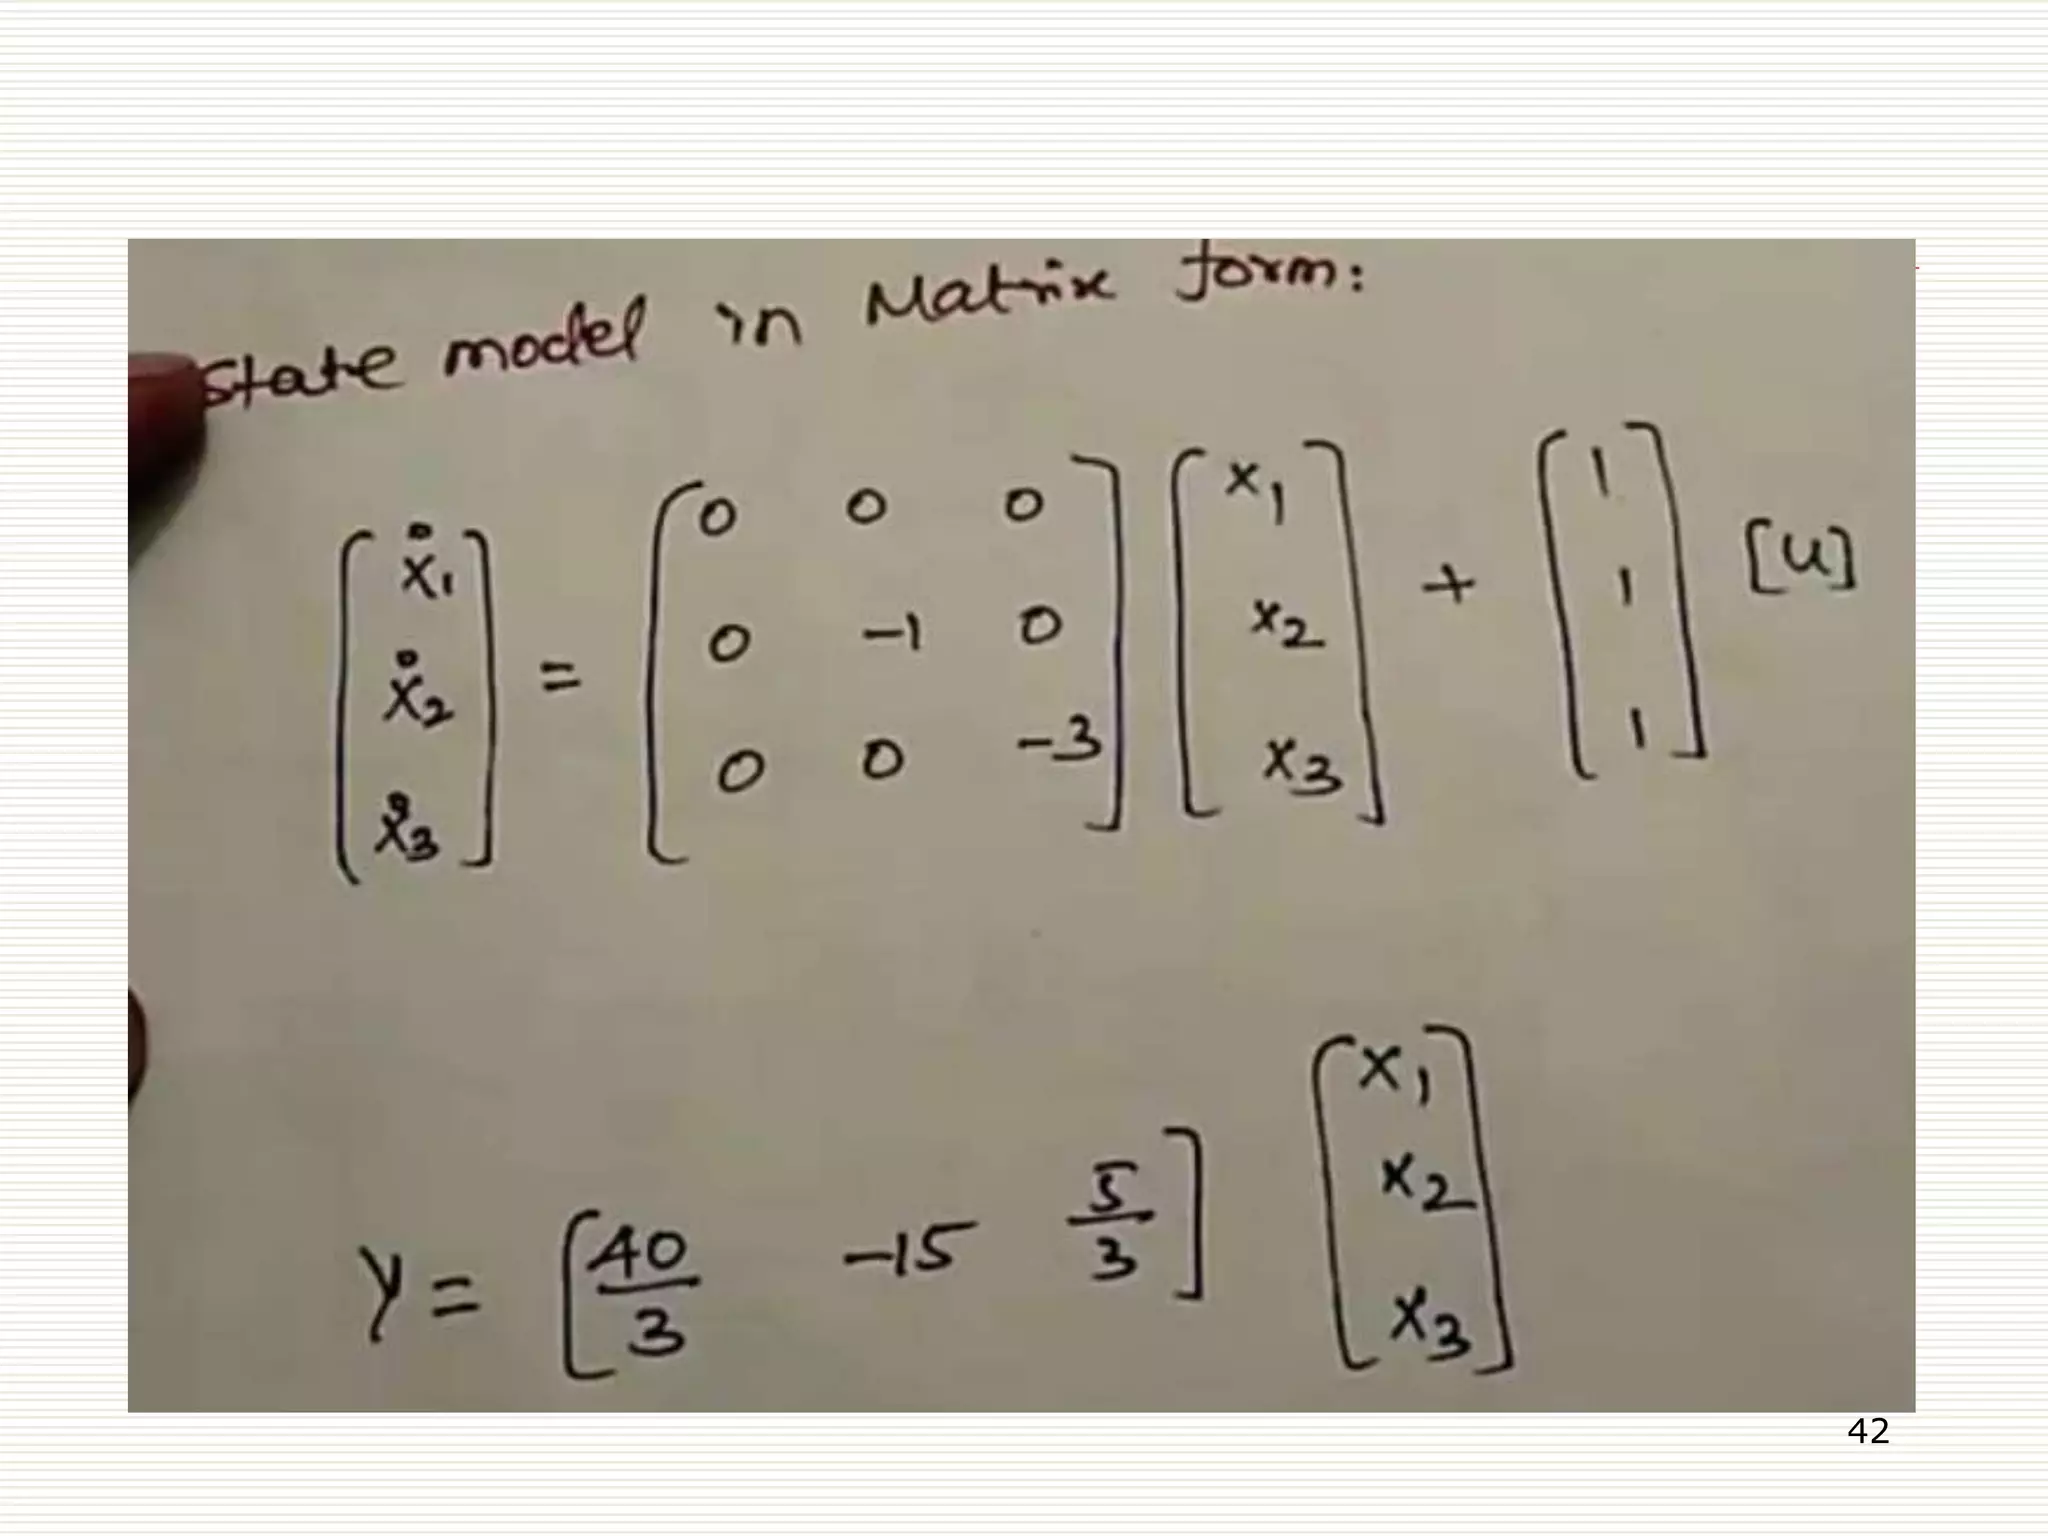 State model in Matrix form:
[ẋ1 ẋ2 ẋ3] = [0 0 0
0 -1 0
0 0 -3] [x1 x2 x3] + [1 1 1] [u]
y = [40/3 -15 5/3] [x1 x2 x3]
42